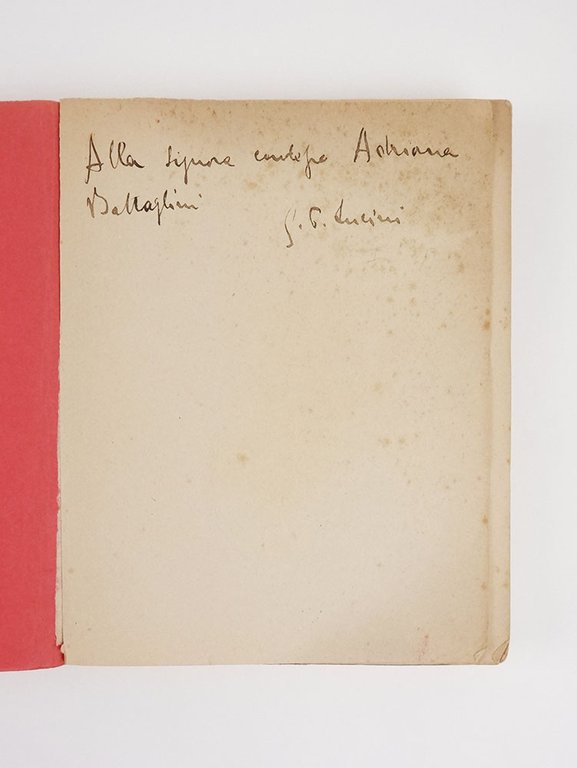 Alla signora contessa Adriana
Battaglini
G. P. Lucini